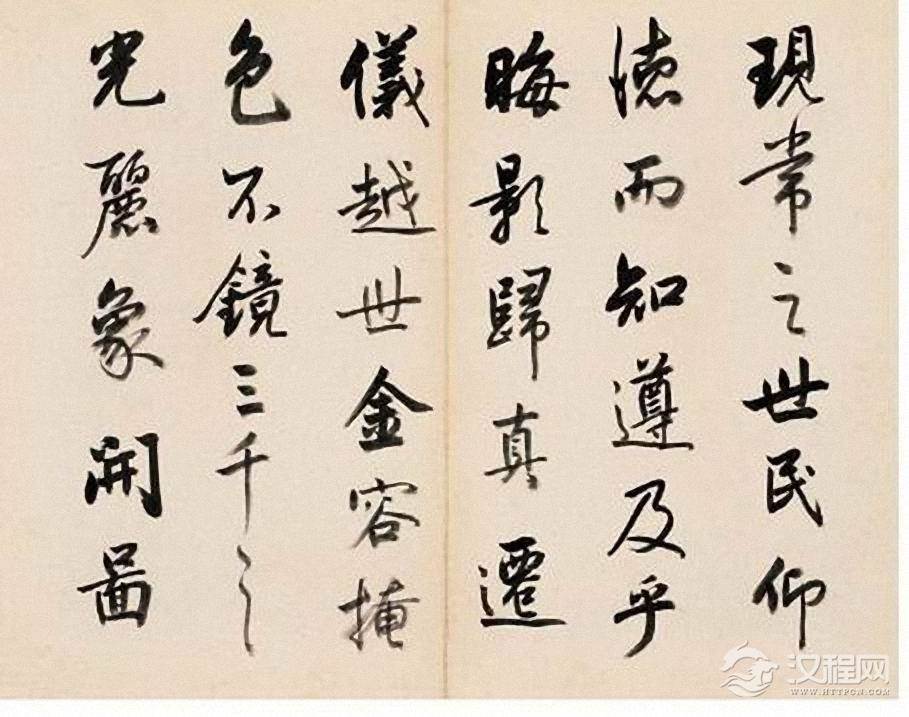 現常之世民仰
徳而知遵及乎
晦影歸真遷
儀越世金容掩
色不鏡三千之
光麗象開啚
汉程网
WWW.HTTPCN.COM